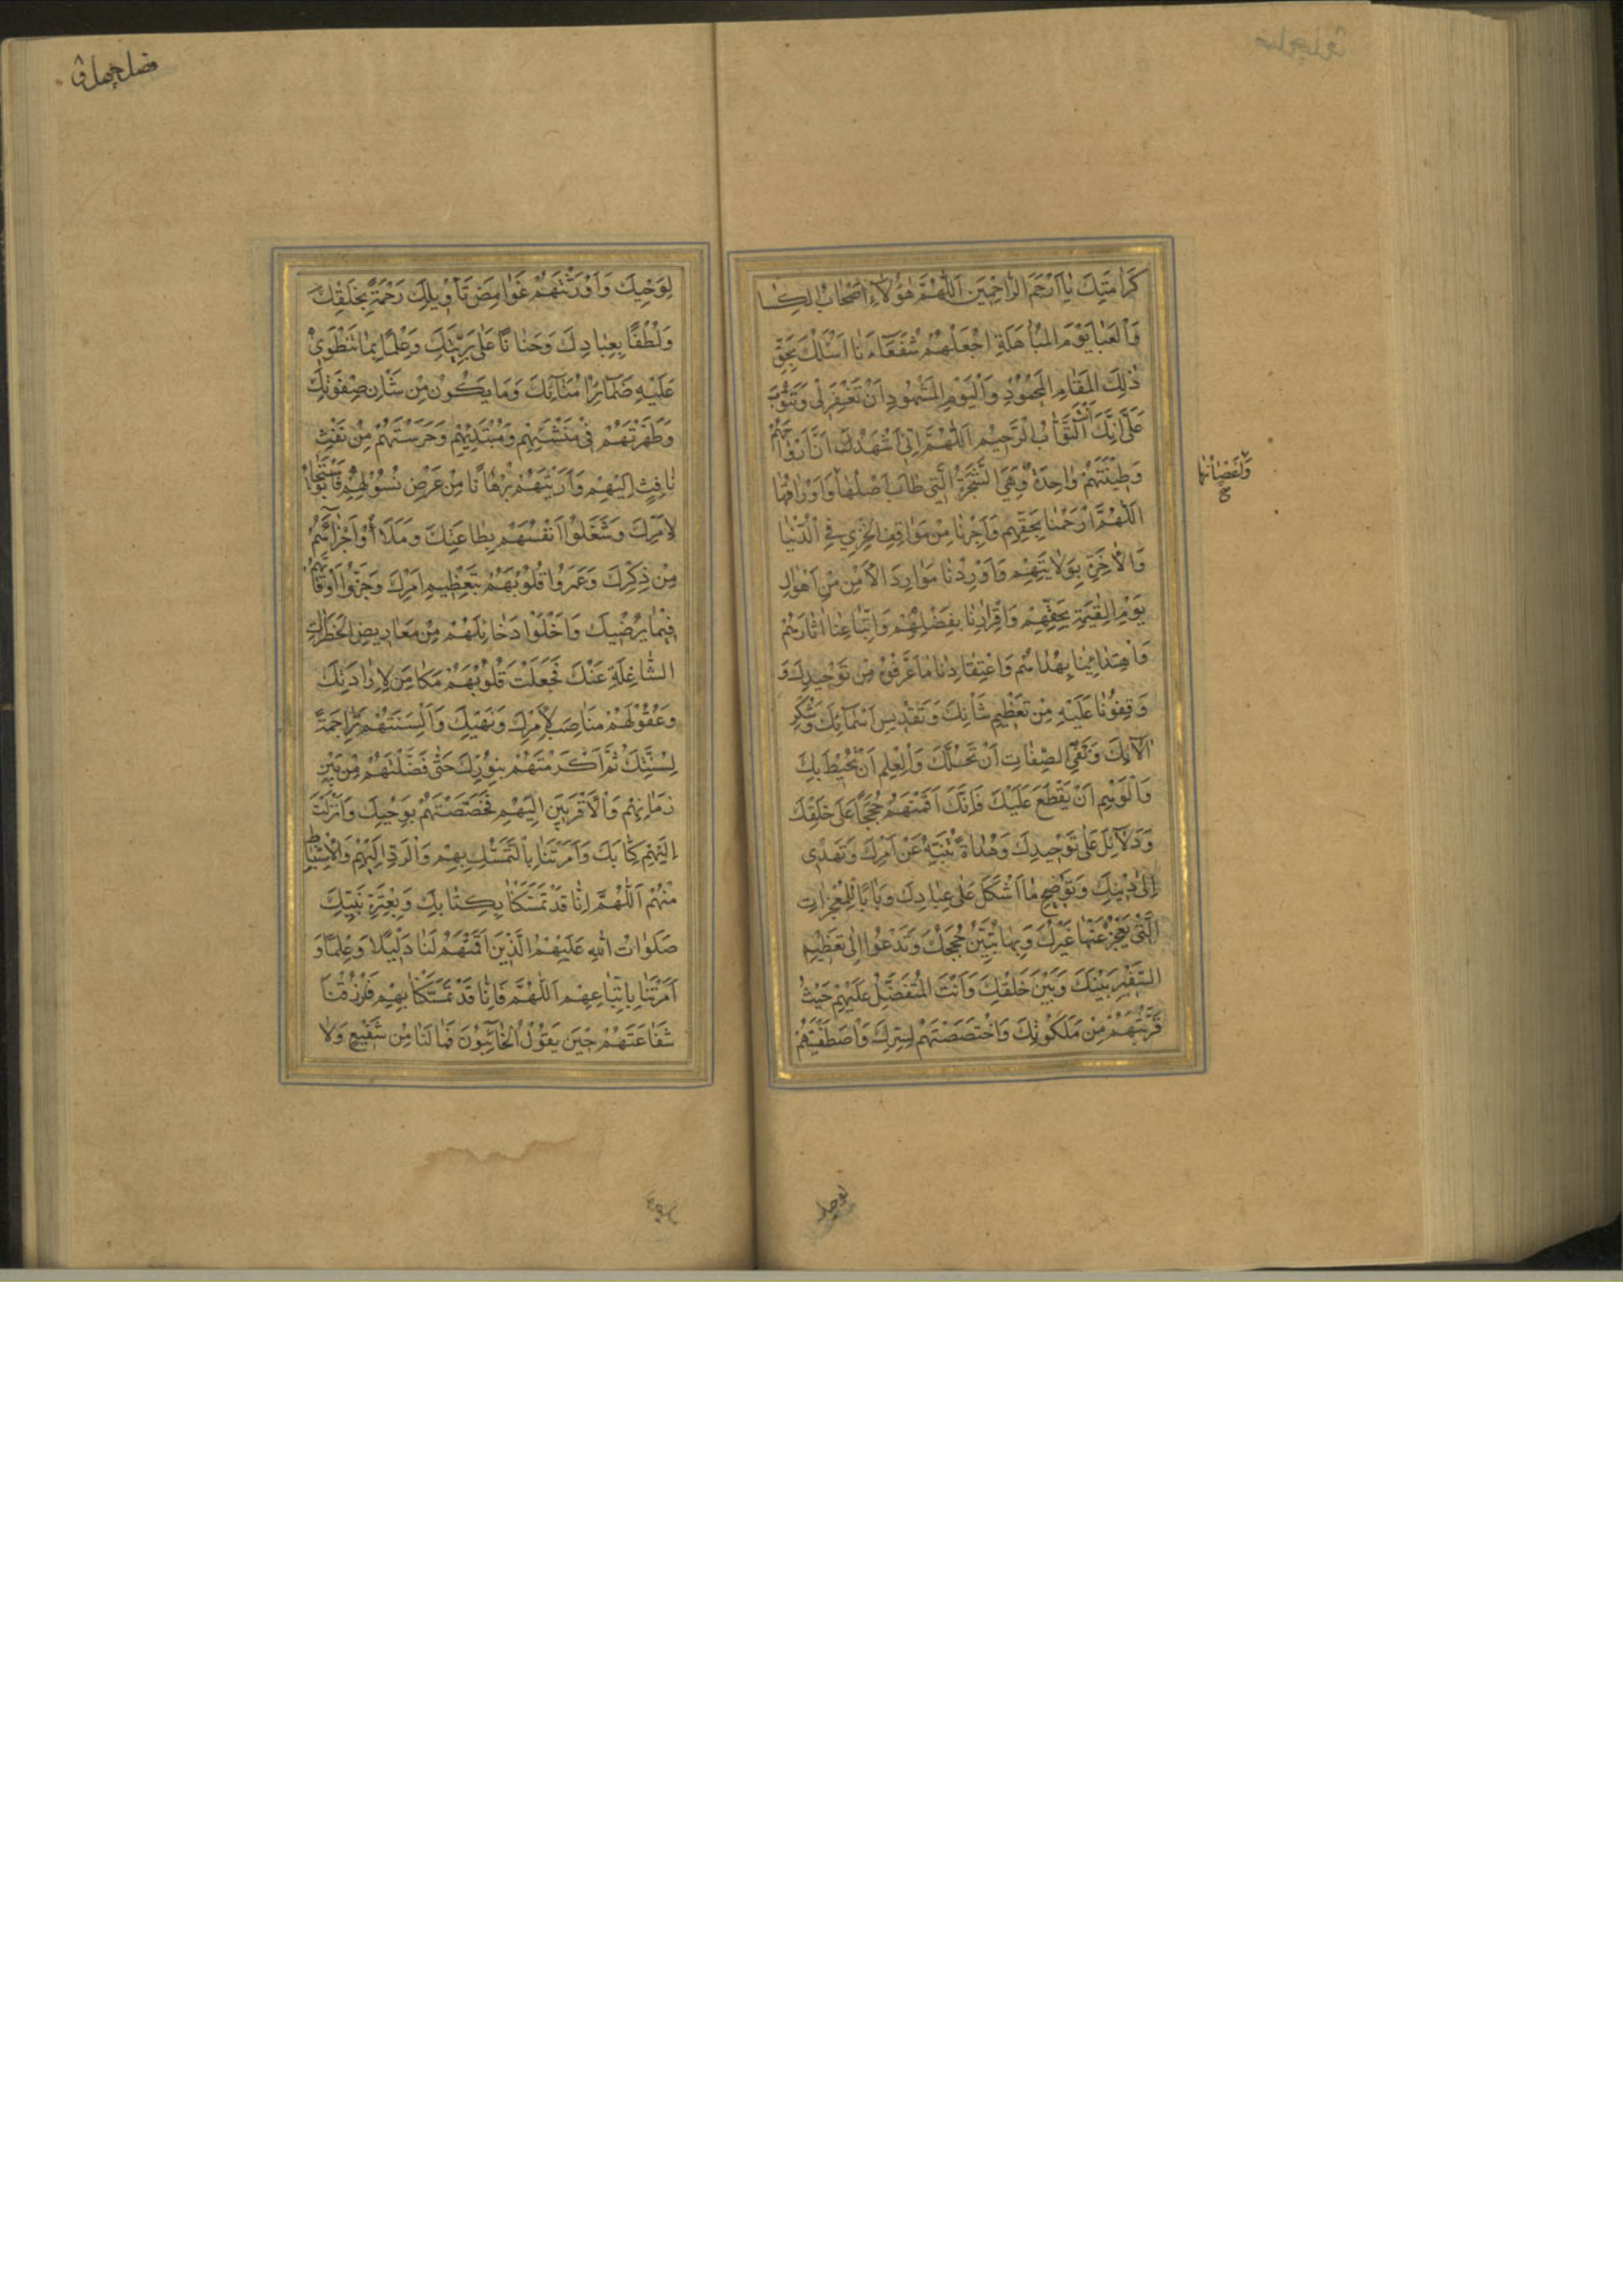 كَرامَتِكَ يا اَرْحَمَ الرّاحِمينَ اَللّهُمَّ هؤُلاءِ اَصْحابُ الكِسا
وَالعَبا يَوْمَ المُباهَلَةِ اجْعَلْهُمْ شُفَعاءَنا اَسْئَلُكَ بِحَقِّ
ذلِكَ المَقامِ المَحْمُودِ وَالْيَوْمِ المَشْهُودِ اَنْ تَغْفِرَ لي وَتَتُوبَ
عَلَيَّ اِنَّكَ اَنْتَ التَّوّابُ الرَّحيمُ اَللّهُمَّ اِنّي اُشْهِدُكَ اَنَّ اَرْواحَهُمْ
وَطينَتَهُمْ واحِدَةٌ وَهِيَ الشَّجَرَةُ الَّتي طابَ اَصْلُها وَاَوْراقُها
وَاَغْصانُها
اَللّهُمَّ ارْحَمْنا بِحَقِّهِمْ وَاَجِرْنا مِنْ مَواقِفِ الخِزْيِ فِي الدُّنْيا
وَالاخِرَةِ بِوِلايَتِهِمْ وَاَوْرِدْنا مَوارِدَ الاَمْنِ مِنْ اَهْوالِ
يَوْمِ القِيمَةِ بِحَقِّهِمْ وَاِقْرارِنا بِفَضْلِهِمْ وَاتِّباعِنا اثارَهُمْ
وَاهْتِدائِنا بِهُداهُمْ وَاعْتِقادِنا ما عَرَّفُونا مِنْ تَوْحيدِكَ وَ
وَقِفُونا عَلَيْهِ مِنْ تَعْظيمِ شَانِكَ وَتَقْديسِ اَسْمائِكَ وَشُكْرِ
الائِكَ وَنَفْيِ الصِّفاتِ اَنْ تَحُلَّكَ وَالْعِلْمِ اَنْ يُحيطَ بِكَ
وَالْوَهْمِ اَنْ يَقْطَعَ عَلَيْكَ فَاِنَّكَ اَقَمْتَهُمْ حُجَجًا عَلى خَلْقِكَ
وَدَلائِلَ عَلى تَوْحيدِكَ وَهُداةً تُنَبِّهُ عَنْ اَمْرِكَ وَتَهْدي
اِلى دينِكَ وَتُوضِحُ ما اَشْكَلَ عَلى عِبادِكَ وَبابًا لِلْمُعْجِزاتِ
الَّتي يَعْجِزُ عَنْها غَيْرُكَ وَبِها تُبَيِّنُ حُجَجَكَ وَتَدْعُوا اِلى تَعْظيمِ
السَّفيرِ بَيْنَكَ وَبَيْنَ خَلْقِكَ وَاَنْتَ المُتَفَضِّلُ عَلَيْهِمْ حَيْثُ
قَرَّبْتَهُمْ مِنْ مَلَكُوتِكَ وَاخْتَصَصْتَهُمْ لِسِرِّكَ وَاصْطَفَيْتَهُمْ
لوحيك
لِوَحْيِكَ وَاَوْرَثْتَهُمْ غَوامِضَ تَأْويلِكَ رَحْمَةً بِخَلْقِكَ
وَلُطْفًا بِعِبادِكَ وَحَنانًا عَلى بَرِيَّتِكَ وَعِلْمًا بِما تَنْطَوي
عَلَيْهِ ضَمائِرُ اُمَنائِكَ وَما يَكُونُ مِنْ شَاْنِ صَفْوَتِكَ
وَطَهَّرْتَهُمْ في مَنْشَئِهِمْ وَمُبْتَدَئِهِمْ وَحَرَسْتَهُمْ مِنْ نَفْثِ
نافِثٍ اِلَيْهِمْ وَاَرَيْتَهُمْ بُرْهانًا مِنْ عَرْضِ بِسُوءٍ لَهُمْ فَاسْتَجابُوا
لاَمْرِكَ وَشَغَلُوا اَنْفُسَهُمْ بِطاعَتِكَ وَمَلَأُوا اَجْزائَهُمْ
مِنْ ذِكْرِكَ وَعَمَرُوا قُلُوبَهُمْ بِتَعْظيمِ اَمْرِكَ وَجَزَّوا اَوْقاتَهُمْ
فيما يُرْضيكَ وَاَخْلَوْا دَخائِلَهُمْ مِنْ مَعاريضِ الخَطَراتِ
الشّاغِلَةِ عَنْكَ فَجَعَلْتَ قُلُوبَهُمْ مَكامِنَ لاِرادَتِكَ
وَعُقُولَهُمْ مَناصِبَ لاَمْرِكَ وَنَهْيِكَ وَاَلْسِنَتَهُمْ تَراجِمَةً
لِسُنَّتِكَ ثُمَّ اَكْرَمْتَهُمْ بِنُورِكَ حَتّى فَضَّلْتَهُمْ مِنْ بَيْنِ
زَمانِهِمْ وَالْاَقْرَبينَ اِلَيْهِمْ فَخَصَصْتَهُمْ بِوَحْيِكَ وَاَنْزَلْتَ
اِلَيْهِمْ كِتابَكَ وَاَمَرْتَنا بِالتَّمَسُّكِ بِهِمْ وَالرَّدِّ اِلَيْهِمْ وَالْاِسْتِنْباطِ
مِنْهُمْ اَللّهُمَّ اِنّا قَدْ تَمَسَّكْنا بِكِتابِكَ وَبِعِتْرَةِ نَبِيِّكَ
صَلَواتُ اللهِ عَلَيْهِمُ الَّذينَ اَقَمْتَهُمْ لَنا دَليلًا وَعِلْمًا وَ
اَمَرْتَنا بِاتِّباعِهِمْ اَللّهُمَّ فَاِنّا قَدْ تَمَسَّكْنا بِهِمْ فَارْزُقْنا
شَفاعَتَهُمْ حينَ يَقُولُ الخائِبُونَ فَما لَنا مِنْ شَفيعٍ وَلا